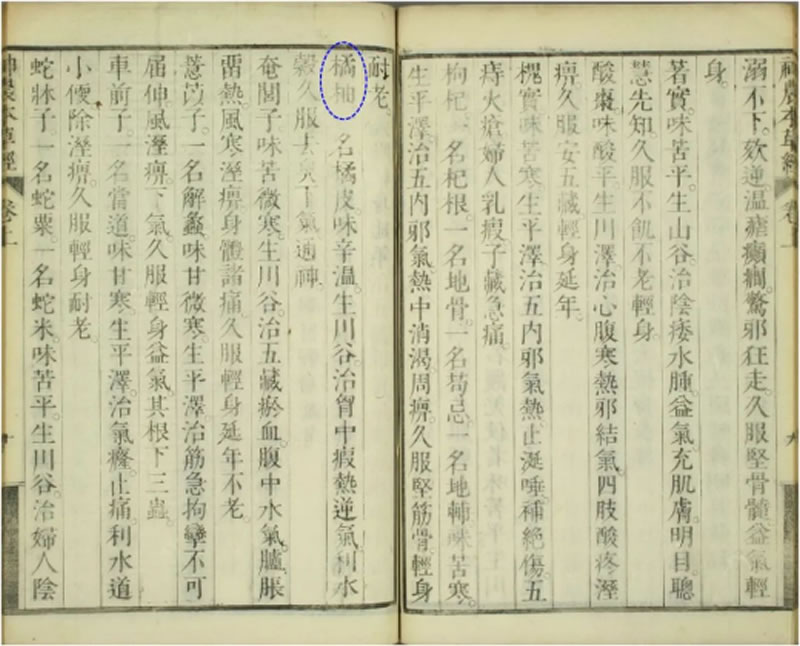 神農本草經 卷上 九
溺不下。欬逆。溫瘧癲癇。驚邪狂走。久服堅骨髓。益氣輕
身。
若實。味苦平。生山谷。治陰痿水腫。益氣充肌膚。明目聰
慧先知。久服不飢不老輕身。
酸棗。味酸平。生川澤。治心腹寒熱。邪結氣。四肢酸疼溼
痹。久服安五藏。輕身延年。
槐實。味苦寒。生平澤。治五内邪氣熱。止涎唾。補絕傷。五
痔火瘡。婦人乳瘕。子藏急痛。
枸杞。一名杞根。一名地骨。一名苟忌。一名地輔。味苦寒。
生平澤。治五内邪氣。熱中消渴。周痹。久服堅筋骨。輕身
耐老。
橘柚。一名橘皮。味辛溫。生川谷。治胷中瘕熱逆氣。利水
穀。久服去臭。下氣通神。
奄閭子。味苦微寒。生川谷。治五藏瘀血。腹中水氣。臚脹
留熱。風寒溼痹。身體諸痛。久服輕身延年不老。
薏苡子。一名解蠡。味甘微寒。生平澤。治筋急拘攣。不可
屈伸。風溼痹。下氣。久服輕身益氣。其根下三蟲。
車前子。一名當道。味甘寒。生平澤。治氣癃。止痛。利水道
小便。除溼痹。久服輕身耐老。
蛇牀子。一名蛇粟。一名蛇米。味苦平。生川谷。治婦人陰
神農本草經 卷上 十